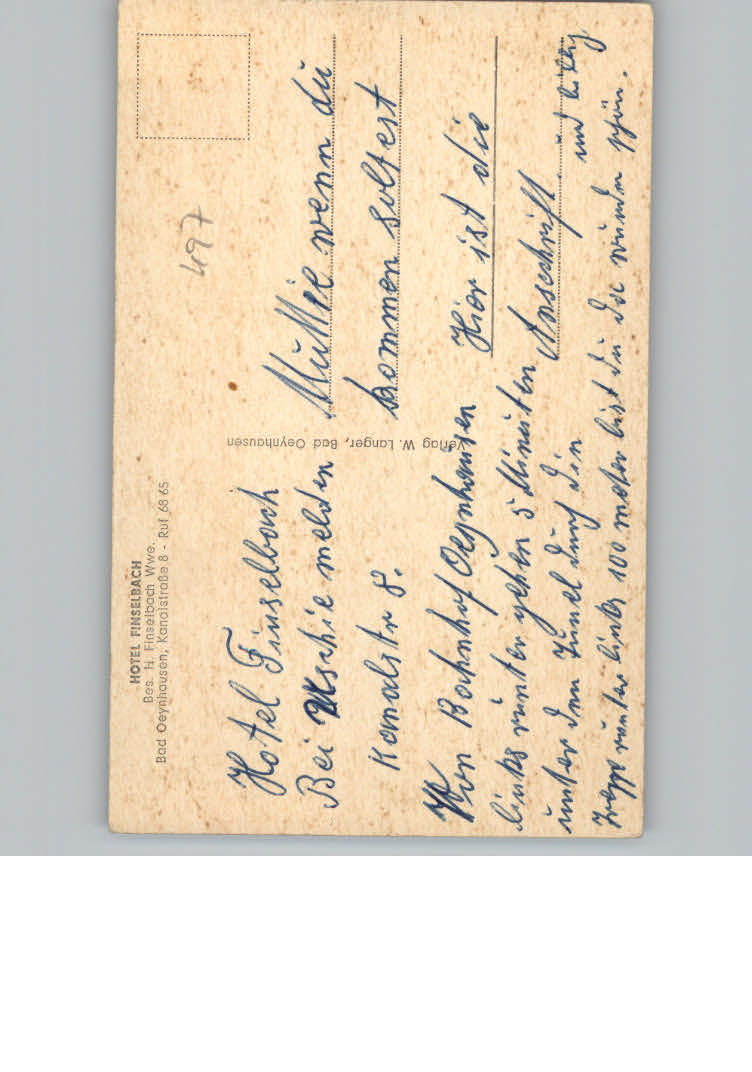 HOTEL FINSELBACH
Bes. H. Finselbach Wwe.
Bad Oeynhausen, Kanalstraße 8 - Ruf 68 65
Hotel Finselbach
Bei Uschie melden
Kanalstr 8.
Von Bahnhof Oeynhausen
links runter gehen 5 Minuten
unter dem Tunel durch den
Treppe runter links 100 meter bist du da wunder schön.
Verlag W. Langer, Bad Oeynhausen
497
Muttie wenn du
kommen soltest
Hier ist die
Anschrift
und